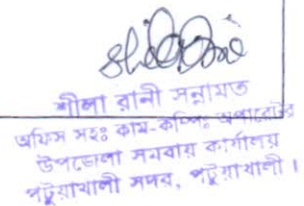 শীলা রানী সন্নামত
অফিস সহঃ কাম-কম্পিঃ অপারেটর
উপজেলা সমবায় কার্যালয়
পটুয়াখালী সদর, পটুয়াখালী।